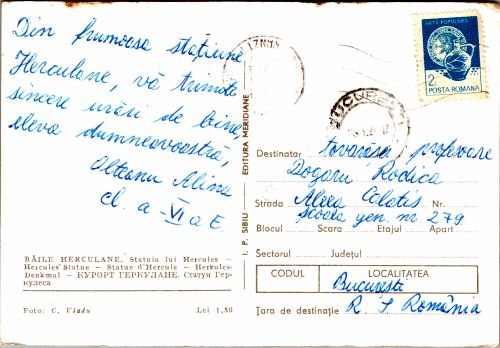 Din frumoasa stațiune
Herculane, vă trimite
sincere urări de bine,
eleva dumneavoastră,
Olteanu Alina
cl. a -VI a E.
BĂILE HERCULANE. Statuia lui Hercules –
Hercules' Statue – Statue d'Hercule – Herkules-
Denkmal – КУРОРТ ГЕРКУЛАНЕ. Статуя Гер-
кулеса
Foto: C. Vladu Lei 1,50
I. P. SIBIU EDITURA MERIDIANE
ARTA POPULARA
2L
POSTA ROMANA
BUCUREȘTI
Destinatar tovarășa profesoare
Bogaru Rodica
Strada Aleea Calatis Nr.
Școala gen. nr 279
Blocul Scara Etajul Apart
Sectorul Județul
CODUL LOCALITATEA
București
Țara de destinație R S România